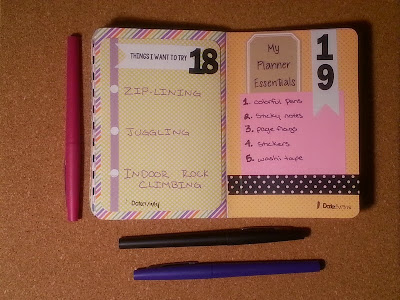 THINGS I WANT TO TRY
18
ZIP-LINING
JUGGLING
INDOOR ROCK
CLIMBING
My
Planner
Essentials
19
1. colorful pens
2. sticky notes
3. page flags
4. stickers
5. washi tape